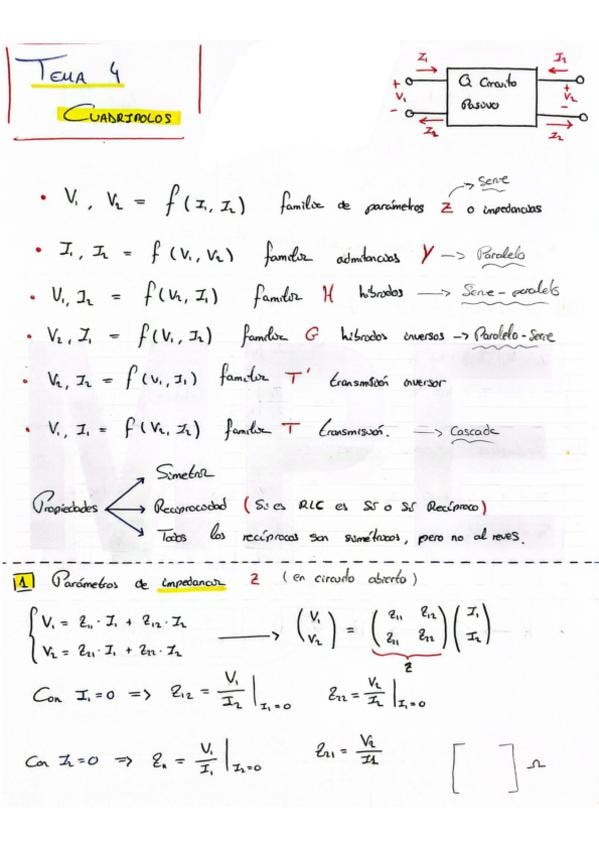 TEMA 4
CUADRIPOLOS
I₁ I₂
+ V₁ - Q Circuito Pasivo + V₂ -
I₂ I₂
• V₁, V₂ = f(I₁, I₂) familia de parámetros Z o impedancias → Serie
• I₁, I₂ = f(V₁, V₂) familia admitancias Y → Paralelo
• V₁, I₂ = f(V₂, I₁) familia H híbridos → Serie-paralelo
• V₂, I₁ = f(V₁, I₂) familia G híbridos inversos → Paralelo-Serie
• V₂, I₂ = f(V₁, I₁) familia T' transmisión inversa
• V₁, I₁ = f(V₂, I₂) familia T transmisión. → Cascada
Simetría
Propiedades Reciprocidad (Si es RLC es Sí o Sí Recíproco)
Todos los recíprocos son simétricos, pero no al revés.
1 Parámetros de impedancia Z (en circuito abierto)
V₁ = Z₁₁ · I₁ + Z₁₂ · I₂
V₂ = Z₂₁ · I₁ + Z₂₂ · I₂ → (V₁ V₂) = (Z₁₁ Z₁₂ Z₁₁ Z₂₂) (I₁ I₂)
Z
Con I₁=0 => Z₁₂ = V₁/I₂ |I₁=0 Z₂₂ = V₂/I₂ |I₁=0
Con I₂=0 => Z₁₁ = V₁/I₁ |I₂=0 Z₂₁ = V₂/I1 [ ] Ω